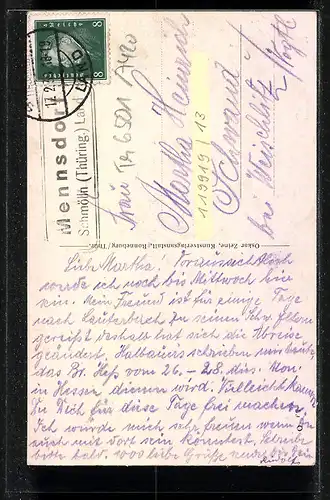 8
8
Mennsdorf
Schmölln (Thüring.) La
Frau
Martha Heinrich
119919/13
Schwand
bei Weischlitz
Vogtl
Oskar Zeine, Kunstverlagsanstalt, Ronneburg Thür.
Liebe Martha! Voraussichtlich
werde ich noch bis Mittwoch hier
sein. Mein Freund ist für einige Tage
nach Lauterbach zu seinen
gereist deshalb hat sich die Abreise
geändert. schrieben mir heute,
das Br. Heß vom 26. - 28. dies. Mon.
in Hessen dienen wird. Vielleicht kannst
Du Dich für diese Tage frei machen,
Ich würde mich sehr freuen wenn Du
auch mit dort sein könntest. Schreibe
bitte bald. 1000 liebe Grüße
Rudolf